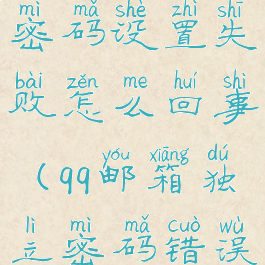 mì mǎ shè zhì shī
密码设置失
bài zěn me huí shì
败怎么回事
yóu xiāng dú
(qq邮箱独
lì mì mǎ cuò wù
立密码错误